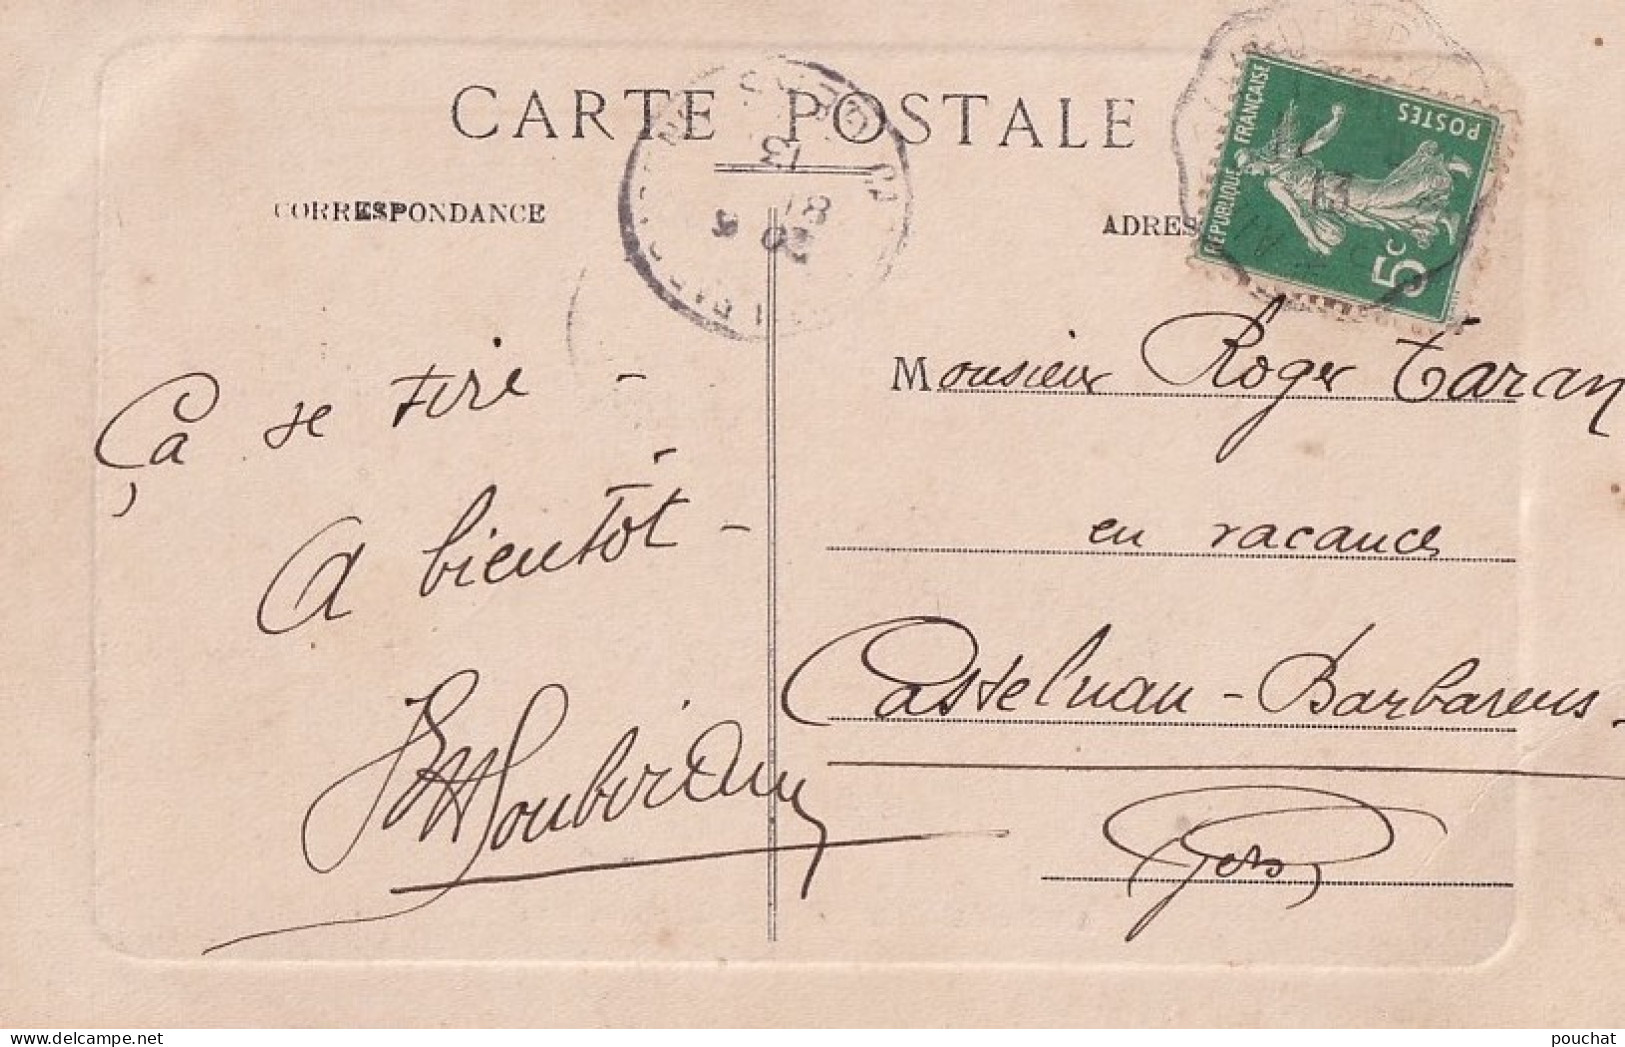 CARTE POSTALE
CORRESPONDANCE
ADRES
RÉPUBLIQUE FRANÇAISE
POSTES
5c
13
13
Ça se tire -
A bientôt -
Monsieur Roger Taran
en vacances
Castelnau-Barbarens-
Gers
pouchat